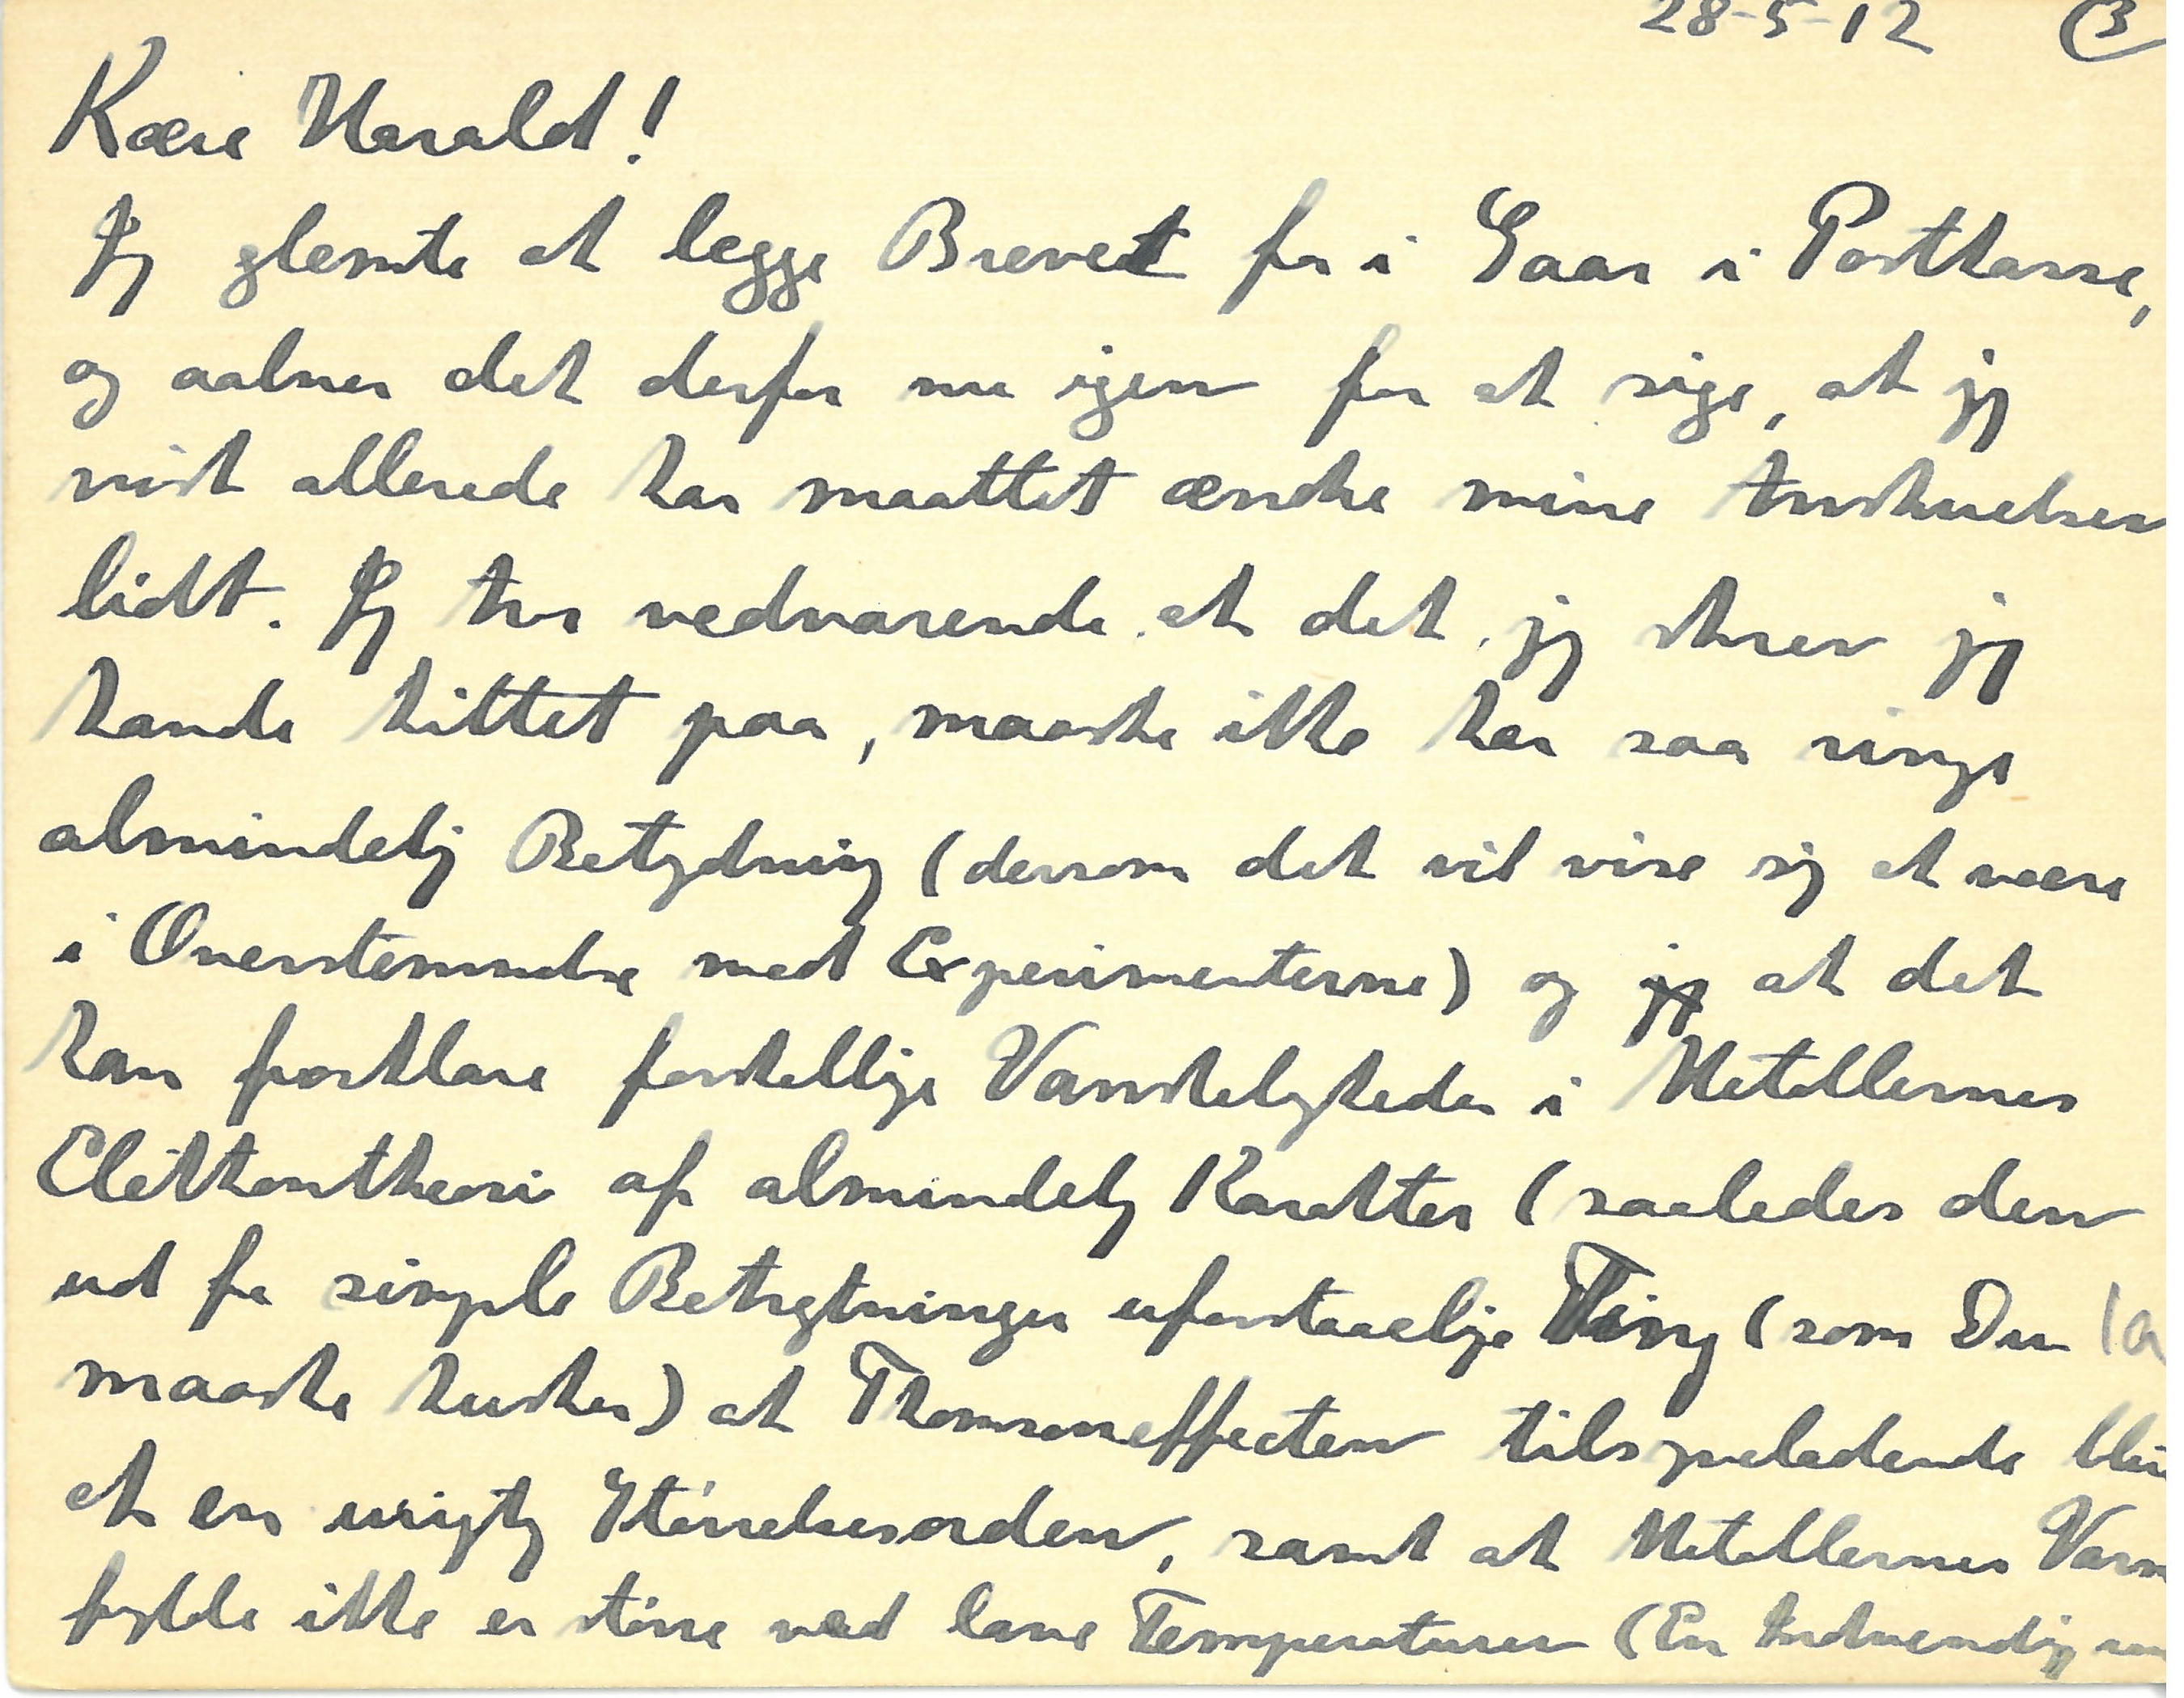 28-5-12 (3
Kære Harald!
Jeg glemte at legge Brevet fra i Gaar i Postkasse,
og aabner det derfor nu igen for at sige, at jeg
vist allerede har maattet ændre mine Anskuelser
lidt. Jeg tror vedvarende at det jeg skrev jeg
havde hittet paa, maaske ikke har saa ringe
almindelig Betydning (dersom det vil vise sig at være
i Overstemmelse med Experimenterne) og jeg at det
kan forklare forskellige Vanskeligheder i Metallernes
Elektrontheori af almindelig Karakter (saaledes den
ud fra simple Betragtninger uforstaaelige Ting (som Du
maaske husker) at Thomsoneffecten tilsyneladende bliver
at en urigtig Størrelsesorden, samt at Metallernes
fylde ikke er større ved lave Temperaturer (En Indvending